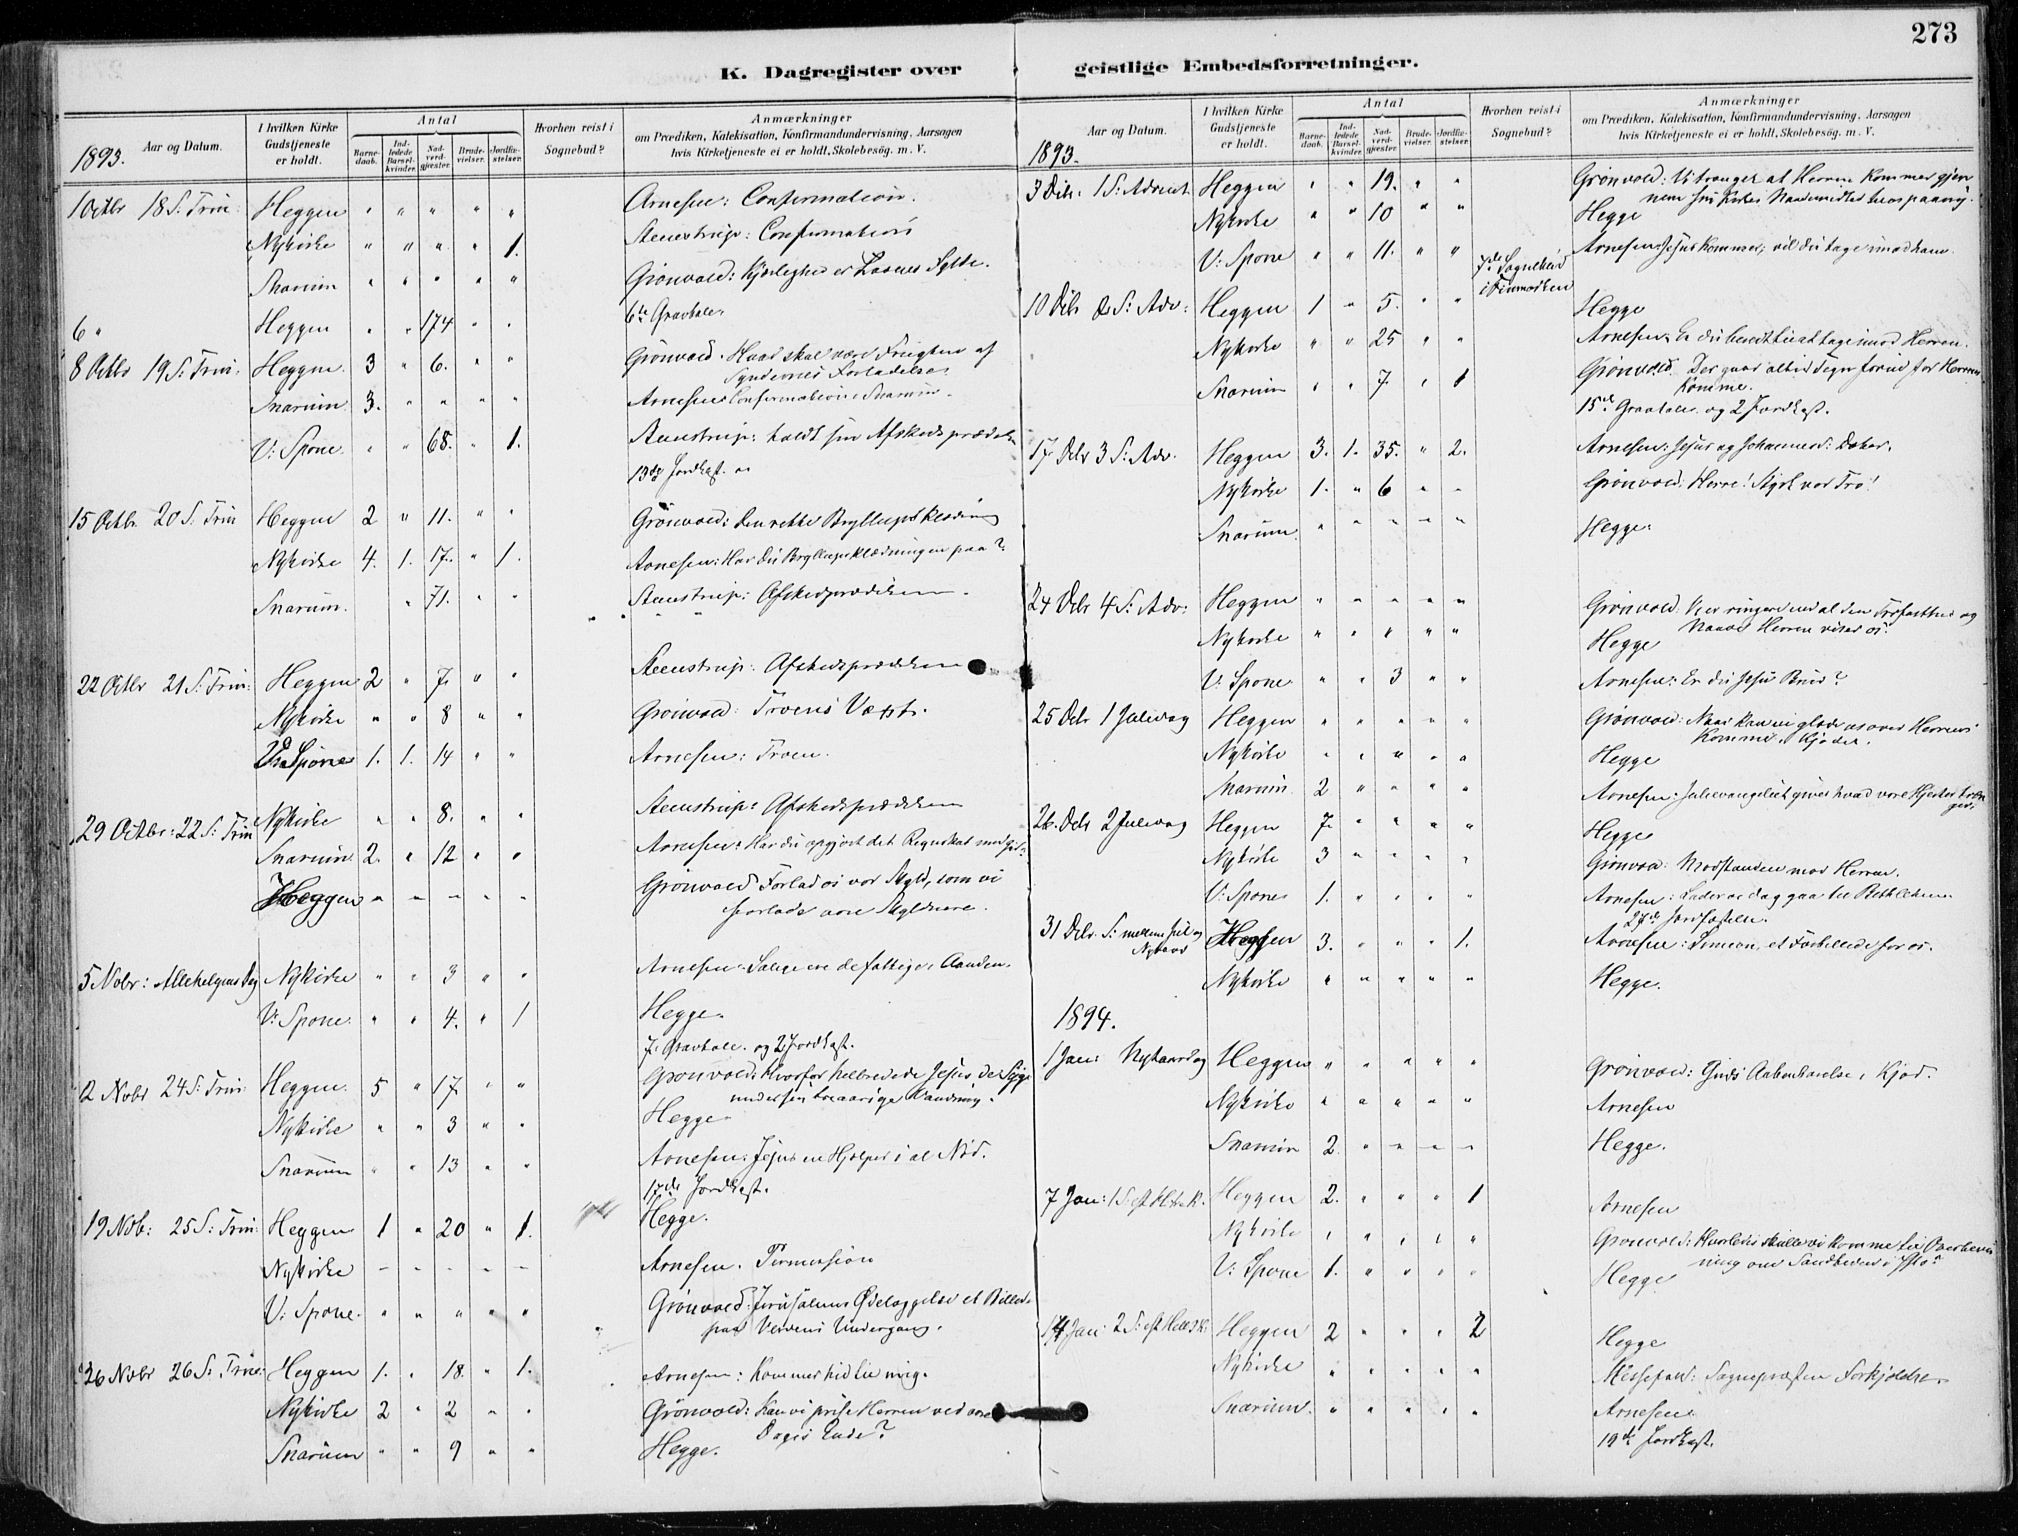 273
K. Dagregister over
Aar og Datum.
I hvilken Kirke Gudstjeneste er holdt.
Antal
Barne-daab.
Ind-ledede Barsel-kvinder.
Nad-verd-gjæster.
Brude-vielser.
Jordfæ-stelser.
Hvorhen reist i Sognebud?
Anmærkninger
om Prædiken, Katekisation, Konfirmandundervisning, Aarsagen
hvis Kirketjeneste ei er holdt, Skolebesøg. m. V.
1893.
1 Octbr 18 S: Trin: Heggen " " " " " Arnesen: Confirmation.
Nykirke " " " " 1. Steenstrup: Confirmation
Snarum " " " " " Grønvold: Kjærlighed er Lovens Fylde.
6te Gravtale.
6 " Heggen " " 174 " "
8 Octbr 19 S: Trin: Heggen 3 " 6. " " Grønvold. Hvad skal være Frugten af
Syndernes Forladelse.
Snarum 3. " " " " Arnesen Confirmation i Snarum.
V: Spone. " " 68. " 1. Steenstrup: holdt sin Afskedsprædiken
13de Jordkast.
15 Octbr. 20 S: Trin Heggen 2 " 11. " " Grønvold: Den rette Bryllupsklædning
Nykirke 4. 1. 17. " 1. Arnesen: Har du Bryllupsklædningen paa?
Snarum. " 71. " " Steenstrup: Afskedsprædiken.
22 Octbr 21 S: Trin: Heggen 2 " 7. " " Steenstrup: Afskedsprædiken
Nykirke " " 8 " " Grønvold: Troens Væxt.
V. Spone 1. 1. 14 " " Arnesen: Troen.
29 Octbr: 22 S: Trin Nykirke " " 8. " " Steenstrup: Afskedsprædiken
Snarum 2. " 12 " " Arnesen: Har du opgjort dit Regnskab med
Heggen " " " " " Grønvold Forlad os vor Skyld, som vi
forlade vore Skyldnere.
5 Nobr: Allehelgens Dag Nykirke " " 3 " " Arnesen: Salige ere de fattige i Aanden.
V: Spone. " " 4. " 1 Hegge.
7. Gravtale. og 2 Jordkast.
2 Nobr 24 S: Trin: Heggen. 5 " 17. " " Grønvold: Hvorfor helbredede Jesus de Syge
under sin treaarige Vandring.
Nykirke " " 3 " " Hegge
Snarum " " 13 " " Arnesen: Jesus en Hjælper i al Nød.
17de Jordkast.
19 Nob: 25 S: Trin: Heggen 1 " 20 " 1. Hegge.
Nykirke - - - - - Arnesen.
V: Spone. " " " " " Grønvold: Jerusalems Ødelæggelse et Billede
paa Verdens Undergang.
26 Nobr 26 S: Trin: Heggen 1. " 18. " 1. Arnesen: Kommer hid til mig.
Nykirke 2 " 2 " " Grønvold: Kan vi prise Herren ved vore
Dages Ende?
Snarum " " 9 " " Hegge.
geistlige Embedsforretninger.
Aar og Datum.
I hvilken Kirke Gudstjeneste er holdt.
Antal
Barne-daab.
Ind-ledede Barsel-kvinder.
Nad-verd-gjæster.
Brude-vielser.
Jordfæ-stelser.
Hvorhen reist i Sognebud?
Anmærkninger
om Prædiken, Katekisation, Konfirmandundervisning, Aarsagen
hvis Kirketjeneste ei er holdt, Skolebesøg. m. V.
1893.
3 Decbr. 1 S: Advent Heggen " " 19. " " Grønvold: Vi trænger at Herren kommer gjen
nem sin Kirkes Naademidler
Nykirke " " 10 " " Hegge
V: Spone " " 11. " " Arnesen: Jesus kommer; vil du tage imod ham.
7de Sognebud
i Finmarken
10 Decbr 2 S: Adv: Heggen 1 " 5. " " Hegge
Nykirke " " 25 " " Arnesen: Er du beredt til at tage imod Herren.
Snarum " " 7. " 1 Grønvold. Der gaar altid Tegn forud for Herrens
Komme.
15de Gravtale. og 2 Jordkast.
17 Decbr 3 S: Adv. Heggen 3. 1. 35. " 2. Arnesen: Jesus og Johannes d: Døber.
Nykirke 1. " 6 " " Grønvold: Herre! Styrk vor Tro!
Snarum " " " " " Hegge.
24 Decbr 4 S: Adv: Heggen " " " " " Grønvold: Vi er ringere end al den Trofasthed og
Naade Herren viser os.
Nykirke " " " " " Hegge
V: Spone " " 3 " " Arnesen: Er du Jesu Brud?
25 Decbr 1 Juledag Heggen " " " " " Grønvold: Naar kan vi glæde os over Herrens
Komme i Kjødet.
Nykirke " " " " " Hegge
Snarum 2 " " " " Arnesen: Juleevangeliet giver hvad vore Hjerter træn
ger.
26. Decbr 2 Juledag Heggen 7. " " " " Hegge
Nykirke 3 " " " " Grønvold: Modstanden mod Herren.
V: Spone 1. " " " " Arnesen: Lader os dog gaa til Bethlehem.
27de Jordfæstelse.
31 Decbr. S: mellem Jul og
Nytaar Heggen 3. " " " 1. Arnesen: Simeon, et Forbillede for os.
Nykirke " " " " " Hegge.
1894.
1 Jan: Nytaarsdag Heggen " " " " " Grønvold: Guds Aabenbarelse i Kjød.
Nykirke " " " " " Arnesen
Snarum 2. " " " " Hegge.
7 Jan: 1 S. eft H. tr. K. Heggen 2. " " " 1 Arnesen
Nykirke " " " " " Grønvold: Hvorledes skulle vi komme til Overbevis
ning om Sandheden i
V: Spone 1. " " " " Hegge
14 Jan: 2 S: eft Hell 3 K. Heggen 2 " " " 2 Hegge
Nykirke " " " " " Messefald: Sognepræsten Forkjølelse.
Snarum. " " " " " Arnesen
19de Jordkast.